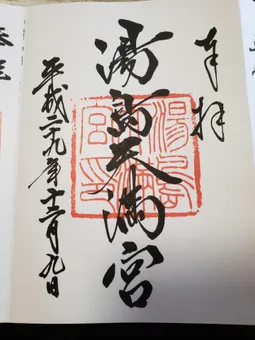 奉拝
湯島天満宮
湯島
天満
宮印
平成二九年十二月九日